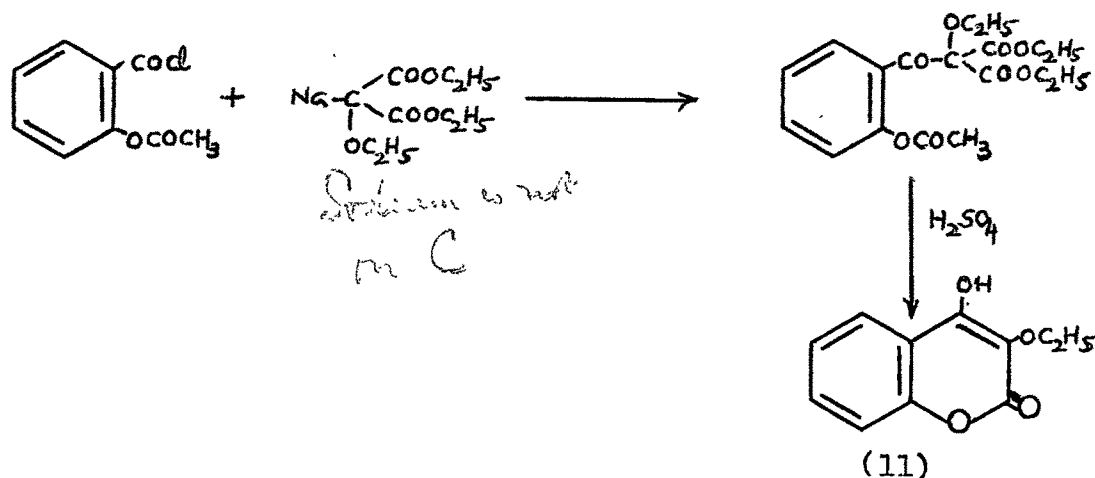 COCl
OCOCH3
+
Na-C
COOC2H5
COOC2H5
OC2H5
is not
on C
OC2H5
CO-C
COOC2H5
COOC2H5
OCOCH3
H2SO4
OH
OC2H5
O
O
(11)